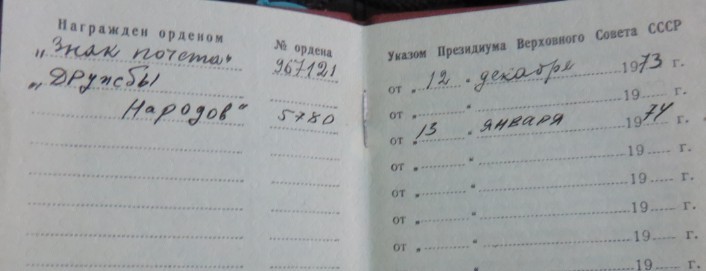 Награжден орденом
№ ордена
„Знак почета“
967121
„Дружбы
Народов“
5780
Указом Президиума Верховного Совета СССР
от „12“ декабря 1973 г.
от „ “ 19 г.
от „13“ января 1974 г.
от „ “ 19 г.
от „ “ 19 г.
от „ “ 19 г.
от „ “ 19 г.
“ 19 г.